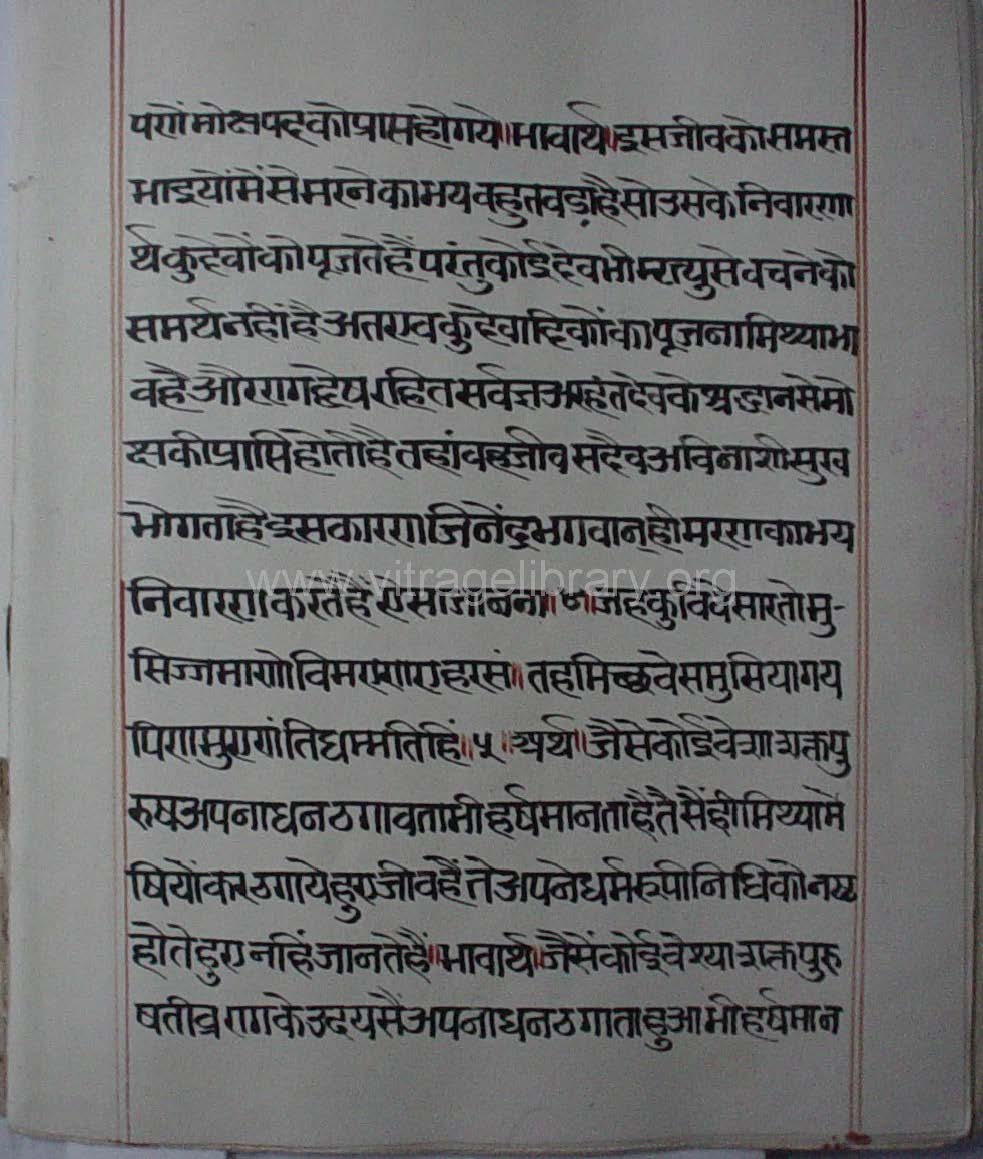 पणें मोक्षपदको प्राप्त होगये॥ भावार्थ॥ इस जीवको समस्त
भाइयोंमेंसे मरनेका भय बहुत बड़ा है सो उसके निवारणा
र्थ कुदेवोंको पूजते हैं परंतु कोई देव भी मृत्युसे बचनेको
समर्थ नहीं है अतएव कुदेवादिकोंका पूजना मिथ्याभा
व है और रागद्वेष रहित सर्वज्ञ अरहंतदेवके श्रद्धानसे मो
क्षकी प्राप्ति होती है तहां वह जीव सदैव अविनाशी सुख
भोगता है इस कारण जिनेंद्र भगवान् ही मरणका भय
निवारण करते हैं एसा जानना॥ जह कुवि वेसारतो मु-
सिज्जमाणो विमणणए हरसं॥ तह मिच्छवेसमुसिया गय
पि ण मुणंति धम्मतिहिं॥ ५॥ अर्थ॥ जैसे कोई वेशाशक्त पु
रुष अपना धन ठगावता भी हर्ष मानता है तैसैंही मिथ्याभे
षियों कर ठगाये हुए जीव हैं ते अपने धर्मरुपी निधिको नष्ट
होते हुए नहिं जानते हैं॥ भावार्थ॥ जैसें कोई वेश्याशक्त पुरु
ष तीव्र रागके उदयसैं अपना धन ठगाता हुआ भी हर्ष मान
www.vitragelibrary.org